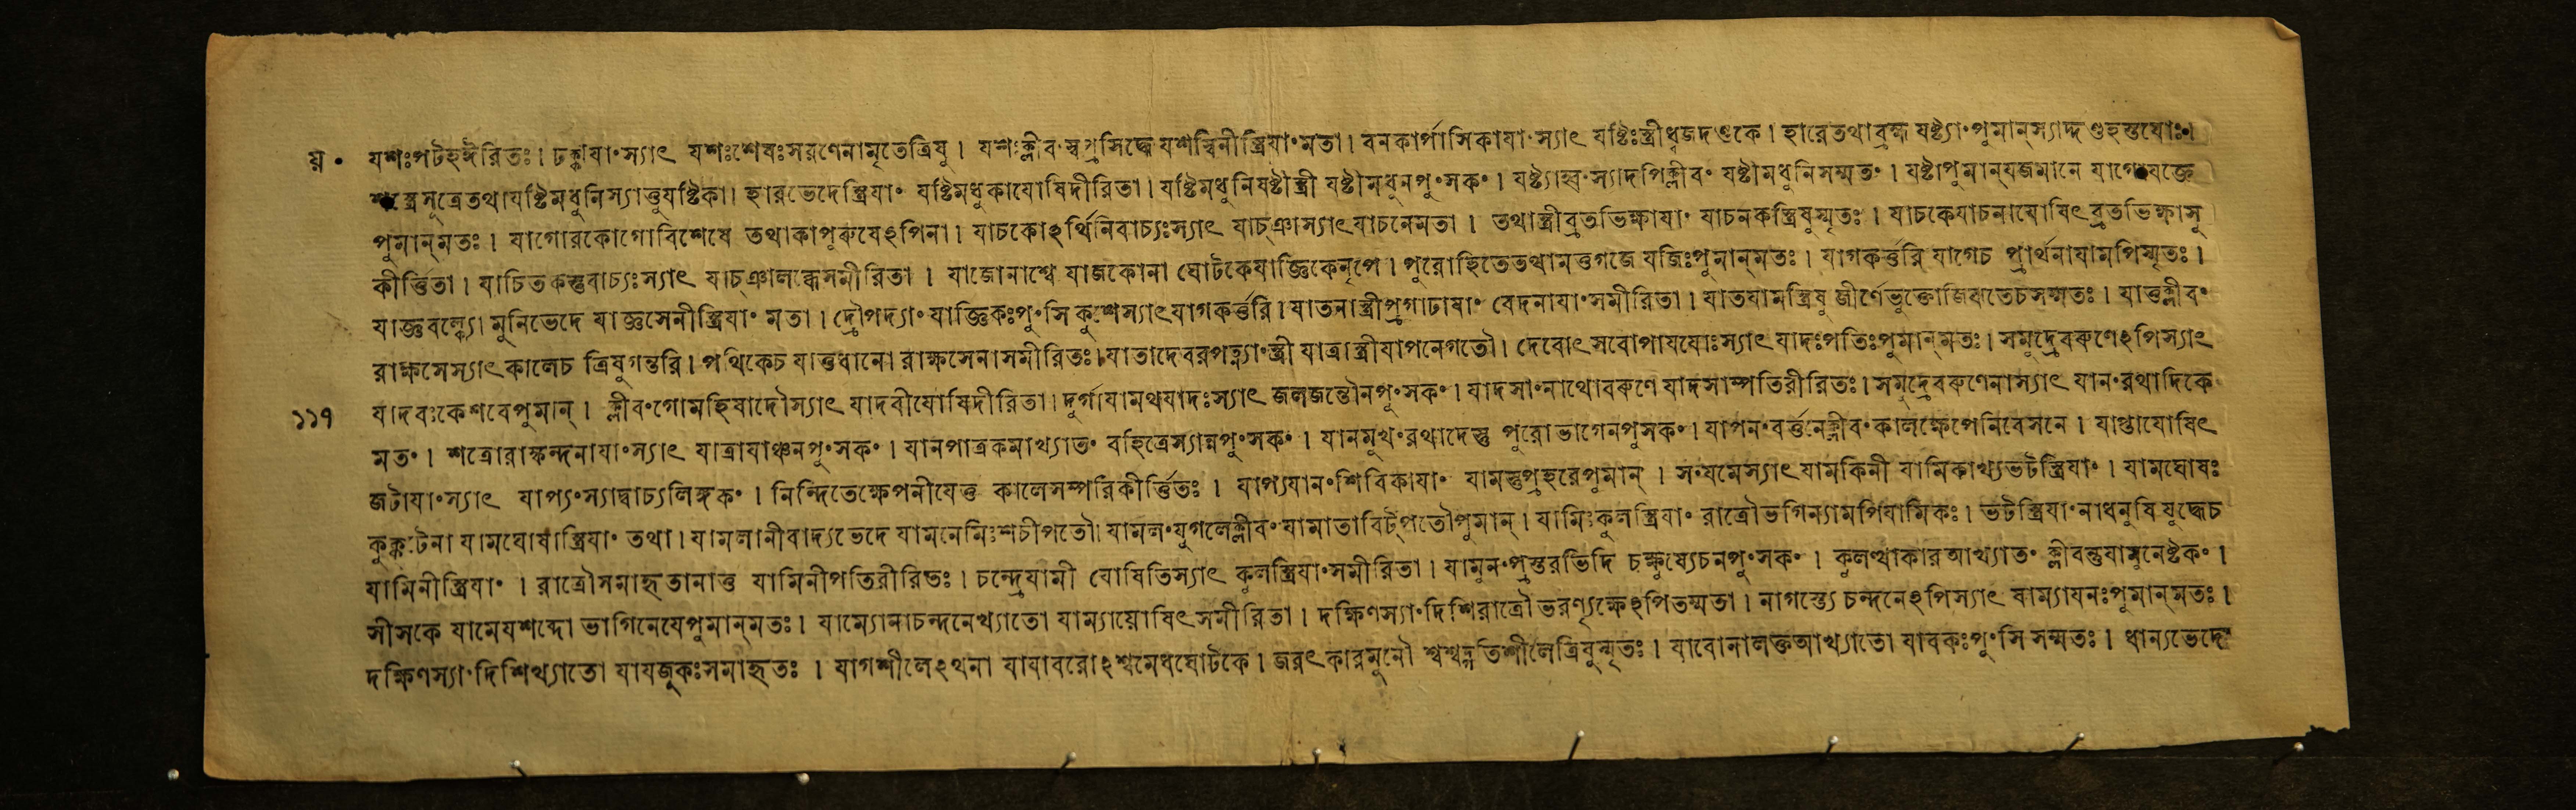 য়ং যশঃপটহঈরিতঃ। ঢক্কাযাংস্যাৎ যশঃশেষঃসরণেনামৃতেত্রিষু। যশঃক্লীবংস্বপ্রসিদ্ধে যশস্বিনীস্ত্রিযাংমতা। বনকার্পাসিকাযাংস্যাৎ যষ্টিঃস্ত্রীধ্বজদণ্ডকে। হারেতথাব্রহ্ম যষ্ট্যাংপুমান্স্যাদ্দণ্ডহস্তযোঃ।
শস্ত্রেসূত্রেতথাযষ্টিমধুনিস্যাত্তুযষ্টিকা। হারভেদেস্ত্রিযাং যষ্টিমধুকাযোষিদীরিতা। যষ্টিমধুনিযষ্টীস্ত্রী যষ্টীমধুনপুংসকং। যষ্ট্যাহ্বংস্যাদপিক্লীবং যষ্টীমধুনিসম্মতং। যষ্টাপুমান্যজমানে যাগোযজ্ঞে
পুমান্মতঃ। যাগোরকোগোবিশেষে তথাকাপুরুষেঽপিনা। যাচকোঽর্থিনিবাচ্যঃস্যাৎ যাচ্ঞাস্যাৎযাচনেমতা। তথাস্ত্রীব্রতভিক্ষাযাং যাচনকস্ত্রিষুস্মৃতঃ। যাচকেযাচনাযোষিৎ ব্রতভিক্ষাসু
কীর্ত্তিতা। যাচিতকস্তুবাচ্যঃস্যাৎ যাচ্ঞালব্ধেসমীরিতা। যাজোনাশ্বে যাজকোনা ঘোটকেযাজ্ঞিকেনৃপে। পুরোহিতেতথামত্তগজে যজিঃপুমান্মতঃ। যাগকর্ত্তরি যাগেচ প্রার্থনাযামপিস্মৃতঃ।
যাজ্ঞবল্ক্যো মুনিভেদে যাজ্ঞসেনীস্ত্রিযাং মতা। দ্রৌপদ্যাং যাজ্ঞিকঃপুংসি কুশেস্যাৎযাগকর্ত্তরি। যাতনাস্ত্রীপ্রগাঢাযাং বেদনাযাংসমীরিতা। যাতযামস্ত্রিষু জীর্ণেভুক্তোজ্ঝিতেচসম্মতঃ। যাত্তুক্লীবং
রাক্ষসেস্যাৎকালেচ ত্রিষুগন্তরি। পথিকেচ যাতুধানো রাক্ষসেনাসমীরিতঃ। যাতাদেবরপত্ন্যাংস্ত্রী যাত্রাস্ত্রীযাপনেগতৌ। দেবোৎসবোপাযযোঃস্যাৎ যাদঃপতিঃপুমান্মতঃ। সমুদ্রেবরুণেঽপিস্যাৎ
১১৭ যাদবঃকেশবেপুমান্। ক্লীবংগোমহিষাদৌস্যাৎ যাদবীযোষিদীরিতা। দুর্গাযামথযাদঃস্যাৎ জলজন্তৌনপুংসকং। যাদসাংনাথোবরুণে যাদসাম্পতিরীরিতঃ। সমুদ্রেবরুণেনাস্যাৎ যানংরথাদিকে
মতং। শত্রোরাক্কন্দনাযাংস্যাৎ যাত্রাযাঞ্চনপুংসকং। যানপাত্রকমাখ্যাতং বহিত্রেস্যান্নপুংসকং। যানমুখংরথাদেস্তু পুরোভাগেনপুসকং। যাপনংবর্ত্তনেক্লীবংকালক্ষেপেনিবেসনে। যাপ্তাযোষিৎ
জটাযাংস্যাৎ যাপ্যংস্যাদ্বাচ্যলিঙ্গকং। নিন্দিতেক্ষেপনীযেত্তু কালেসম্পরিকীর্ত্তিতঃ। যাপ্যযানংশিবিকাযাং যামস্তুপ্রহরেপুমান্। সংযমেস্যাৎ যামকিনী যামিকাখ্যভটস্ত্রিযাং। যামঘোষঃ
কুক্কুটেনা যামঘোষাস্ত্রিযাং তথা। যামলানীবাদ্যভেদে যামনেমিঃশচীপতৌ। যামলংযুগলেক্লীবং যামাতাবিট্পতৌপুমান্। যামিঃকুলস্ত্রিযাং রাত্রৌভগিন্যামপিযামিকঃ। ভটস্ত্রিযাংনাধনুষি যুদ্ধেচ
যামিনীস্ত্রিযাং। রাত্রৌসমাহৃতানাত্তু যামিনীপতিরীরিতঃ। চন্দ্রেযামী যোষিতিস্যাৎ কুলস্ত্রিযাংসমীরিতা। যামুনংপ্রস্তরভিদি চক্ষুষ্যেচনপুংসকং। কুলত্থাকারআখ্যাতং ক্লীবন্তুযামুনেষ্টকং।
সীসকে যামেযশব্দো ভাগিনেযেপুমান্মতঃ। যাম্যোনাচন্দনেখ্যাতো যাম্যাযোষিৎসমীরিতা। দক্ষিণস্যাংদিশিরাত্রৌ ভরণ্যৃক্ষেঽপিতন্মতা। নাগস্ত্যে চন্দনেঽপিস্যাৎ যাম্যাযনঃপুমান্মতঃ।
দক্ষিণস্যাংদিশিখ্যাতো যাযজুকঃসমাহৃতঃ। যাগশীলেঽথনা যাযাবরোঽশ্বমেধঘোটকে। জরৎকারমুনৌ শ্বশ্বদ্গতিশীলেত্রিষুস্মৃতঃ। যাবোনালক্তআখ্যাতো যাবকঃপুংসি সম্মতঃ। ধান্যভেদে